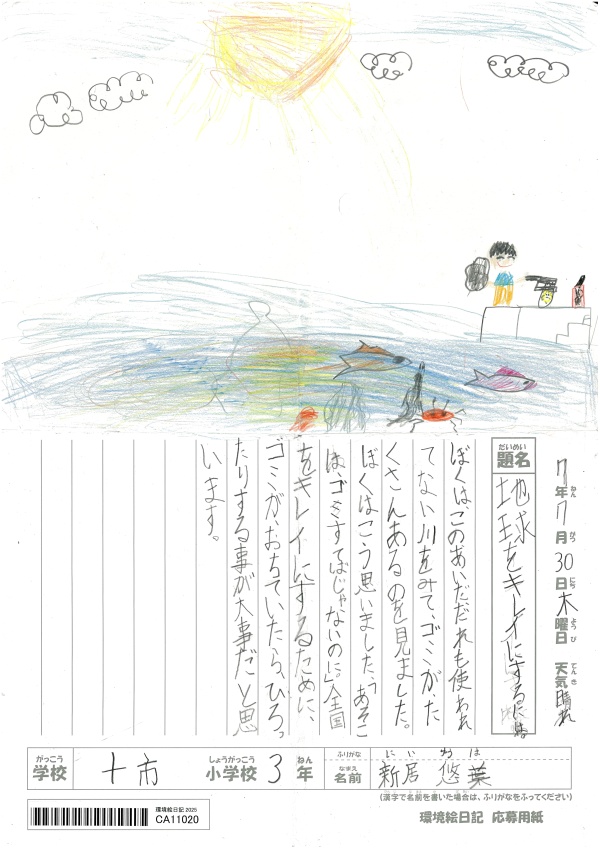 7年7月30日木曜日 天気晴れ
ねん がつ にち ようび てんき
だいめい
題名
地球をキレイにするには
ぼくは、このあいだだれも使われ
てない川をみて、ゴミが、た
くさんあるのを見ました。
ぼくはこう思いました、「あそこ
は、ゴミすてばじゃないのに。」全国
をキレイにするために、
ゴミが、おちていたら、ひろっ
たりする事が大事だと思
います。
がっこう
学校
十市
しょうがっこう
小学校
3
ねん
年
ふりがな
にい わ は
なまえ
名前
新居 悠葉
(漢字で名前を書いた場合は、ふりがなをふってください)
環境絵日記 2025
CA11020
環境絵日記 応募用紙